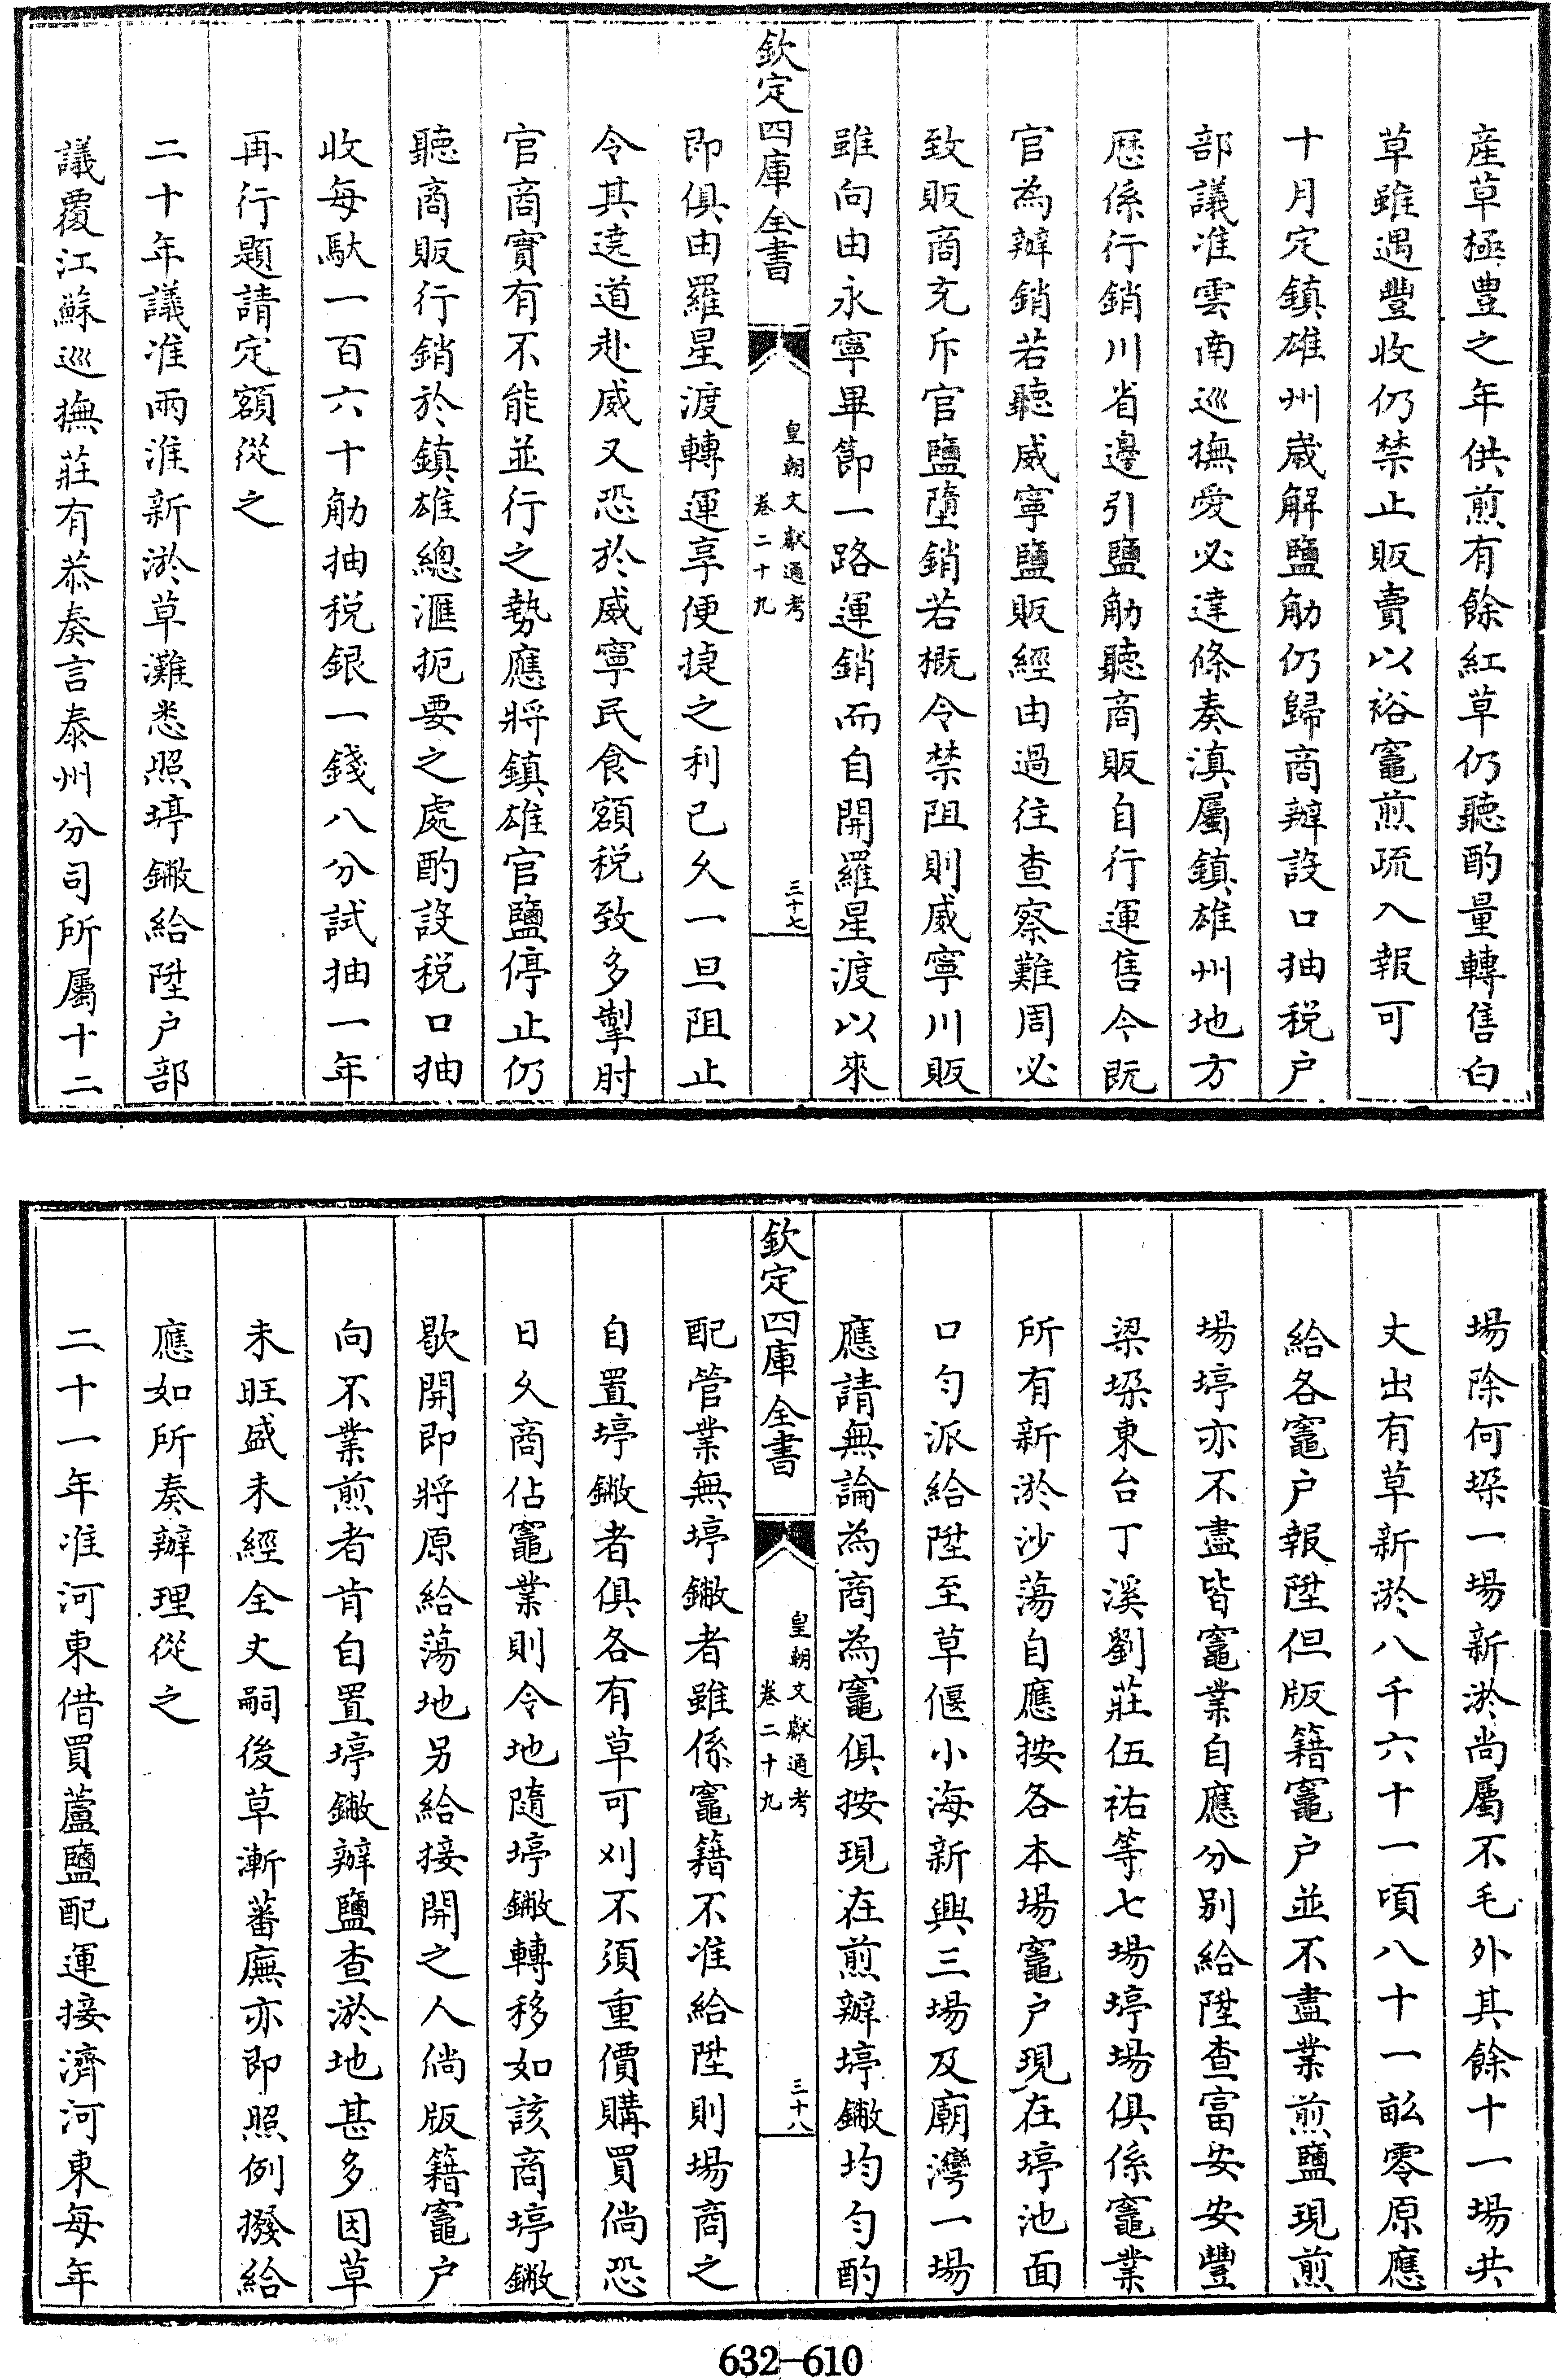 産草極豊之年供煎有餘紅草仍聽酌量轉售白
草雖遇豐收仍禁止販賣以裕竈煎疏入報可
十月定鎮雄州歳解鹽觔仍歸商辦設口抽税户
部議准雲南巡撫愛必達條奏滇屬鎮雄州地方
歴係行銷川省邊引鹽觔聽商販自行運售今既
官為辦銷若聽威寧鹽販經由過往查察難周必
致販商充斥官鹽墮銷若概令禁阻則威寧川販
雖向由永寧畢節一路運銷而自開羅星渡以來
欽定四庫全書
皇朝文獻通考
卷二十九
三十七
即俱由羅星渡轉運享便捷之利已久一旦阻止
令其遶道赴威又恐於威寧民食額税致多掣肘
官商實有不能並行之勢應將鎮雄官鹽停止仍
聽商販行銷於鎮雄總滙扼要之處酌設税口抽
收每馱一百六十觔抽税銀一錢八分試抽一年
再行題請定額從之
二十年議准兩淮新淤草灘悉照𡊠鐅給陞户部
議覆江蘇巡撫莊有恭奏言泰州分司所屬十二
場除何垛一場新淤尚屬不毛外其餘十一場共
丈出有草新淤八千六十一頃八十一畝零原應
給各竈户報陞但版籍竈户並不盡業煎鹽現煎
場𡊠亦不盡皆竈業自應分别給陞查富安安豐
梁垛東台丁溪劉莊伍祐等七場𡊠場俱係竈業
所有新淤沙蕩自應按各本場竈户現在𡊠池面
口匀派給陞至草偃小海新興三場及廟灣一場
應請無論為商為竈俱按現在煎辦𡊠鐅均匀酌
欽定四庫全書
皇朝文獻通考
卷二十九
三十八
配管業無𡊠鐅者雖係竈籍不准給陞則場商之
自置𡊠鐅者俱各有草可刈不須重價購買倘恐
日久商佔竈業則令地隨𡊠鐅轉移如該商𡊠鐅
歇開即將原給蕩地另給接開之人倘版籍竈户
向不業煎者肯自置𡊠鐅辦鹽查淤地甚多因草
未旺盛未經全丈嗣後草漸蕃廡亦即照例撥給
應如所奏辦理從之
二十一年准河東借買蘆鹽配運接濟河東每年
632-610